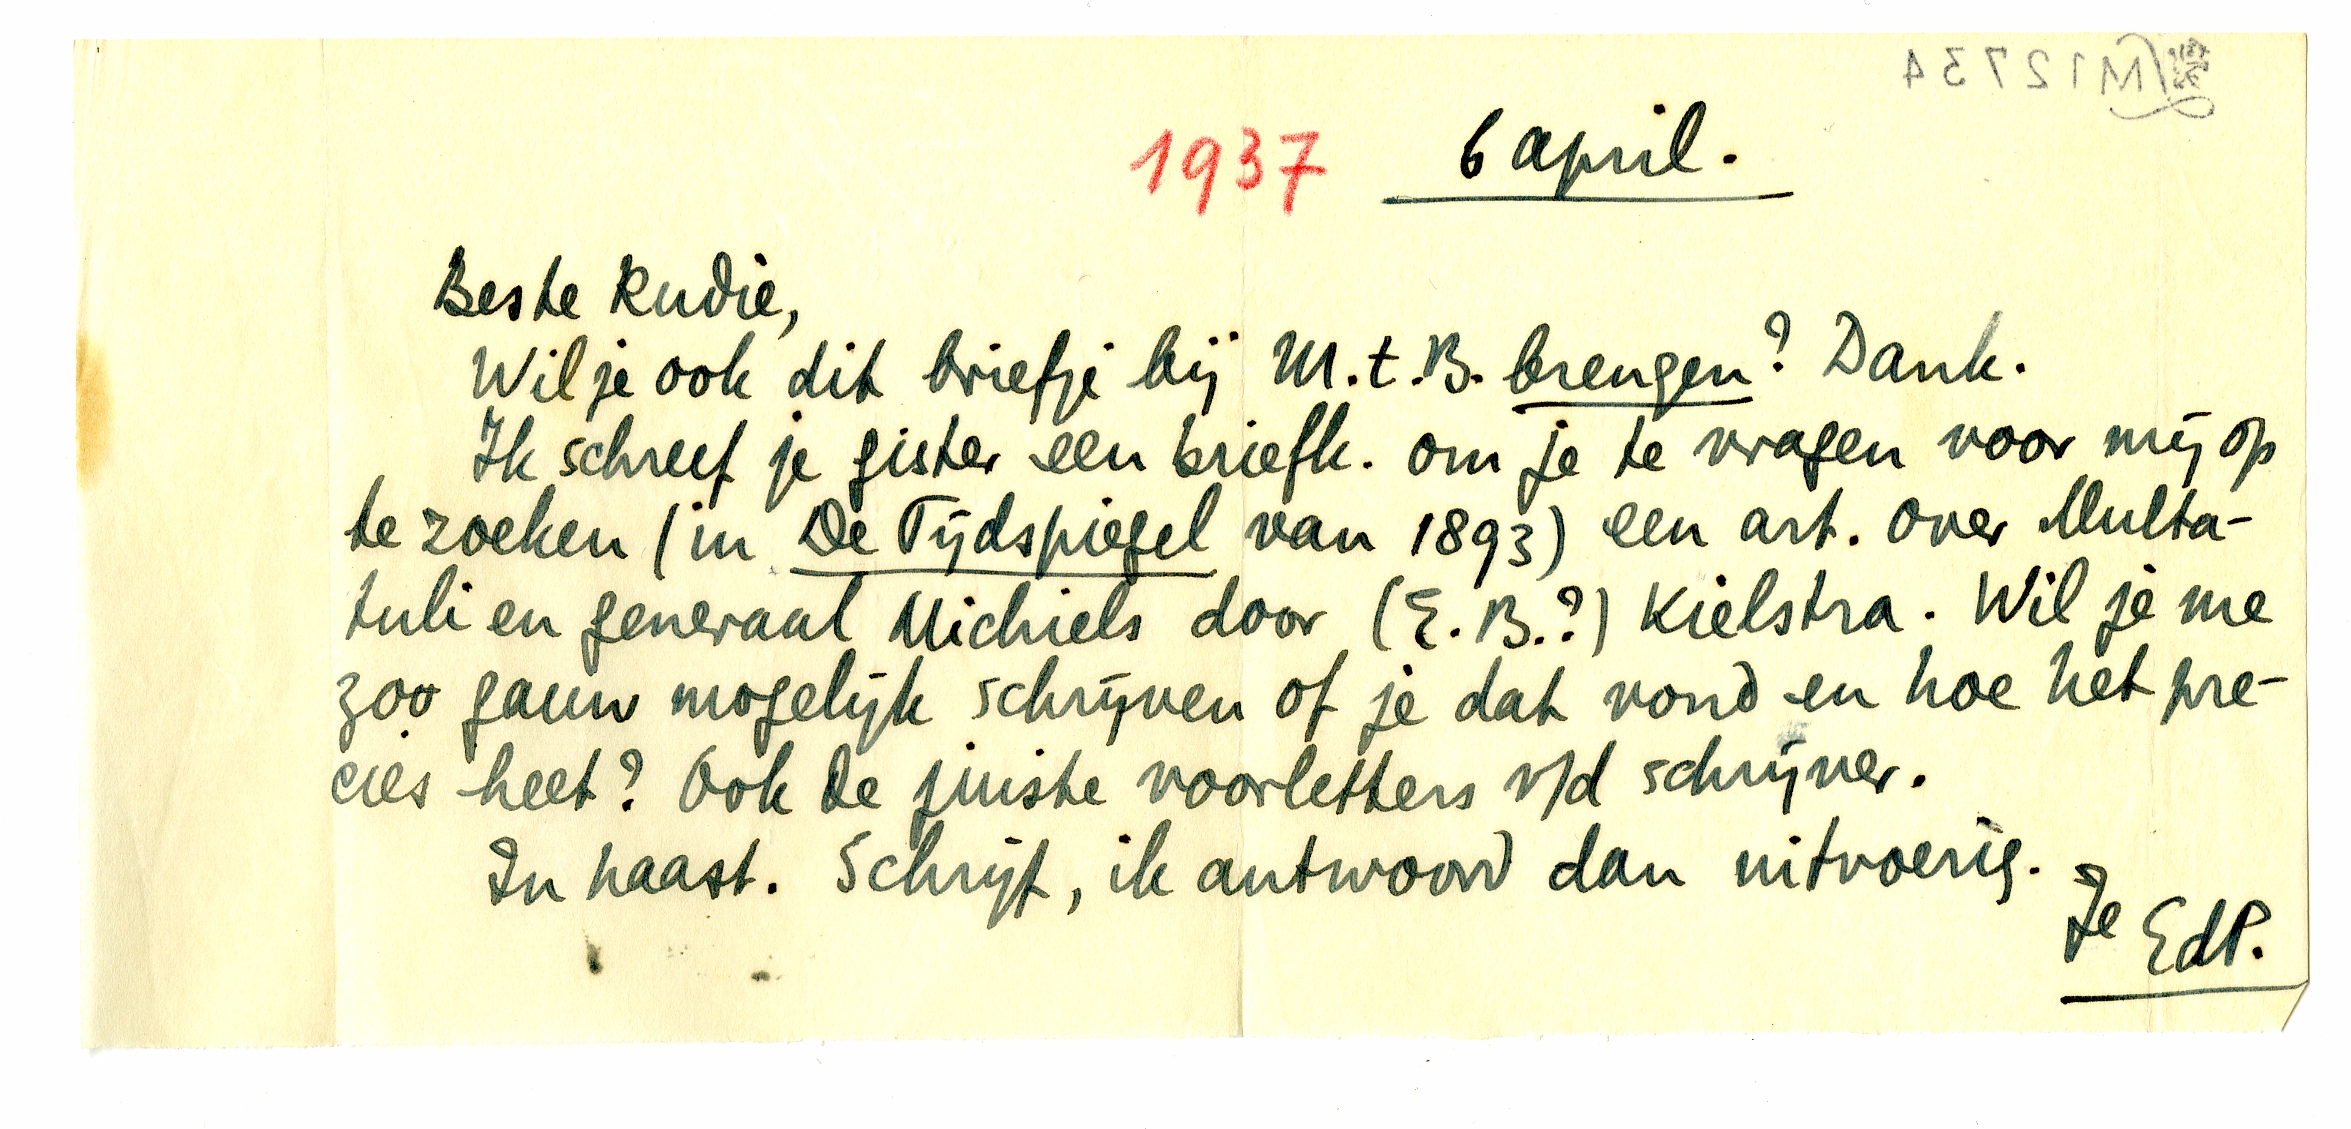 M12734
1937 6 april.
Beste Rudie,
Wil je ook dit briefje bij M.t.B. brengen? Dank.
Ik schreef je gister een briefk. om je te vragen voor mij op
te zoeken (in De Tijdspiegel van 1893) een art. over Multa-
tuli en generaal Michiels door (E.B.?) Kielstra. Wil je me
zoo gauw mogelijk schrijven of je dat vond en hoe het pre-
cies heet? Ook de juiste voorletters v/d schrijver.
In haast. Schrijf, ik antwoord dan uitvoerig.
Je EdP.